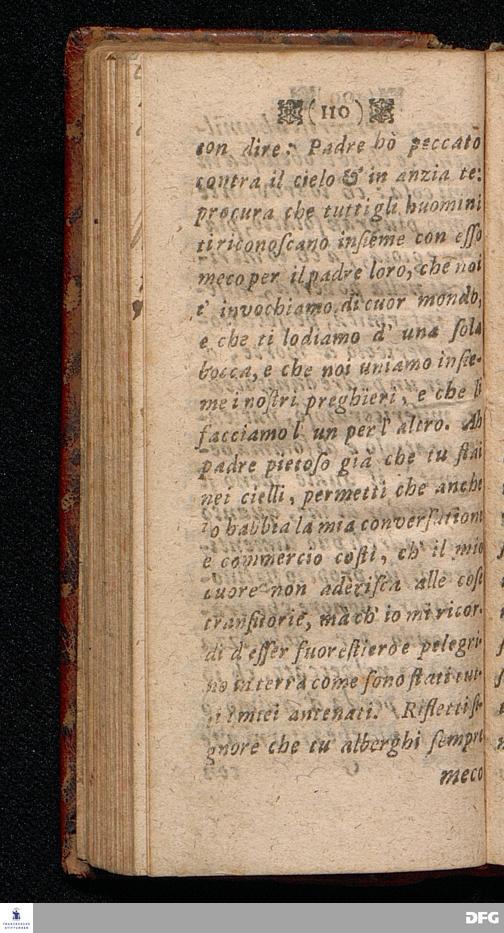 (110)
con dire: Padre hò peccato
contra il cielo & in anzia te:
procura che tutti gli huomini
ti riconoſcano inſieme con eſſo
meco per il padre loro, che noi
t' invochiamo di cuor mondo,
e che ti lodiamo d' una ſola
bocca, e che noi uniamo inſie-
me i noſtri preghieri, e che li
facciamo l' un per l' altro. Ah
padre pietoſo già che tu ſtai
nei cielli, permetti che anche
io habbia la mia converſation
e commercio coſti, ch' il mio
cuore non aderiſca alle coſe
tranſitorie, mà ch' io mi ricor-
di d' eſſer fuoreſtiero e pelegri-
no in terra come ſono ſtati tut-
ti i miei antenati. Riflettiſi-
gnore che tu alberghi ſempre
meco
FRANCKESCHE
STIFTUNGEN
DFG